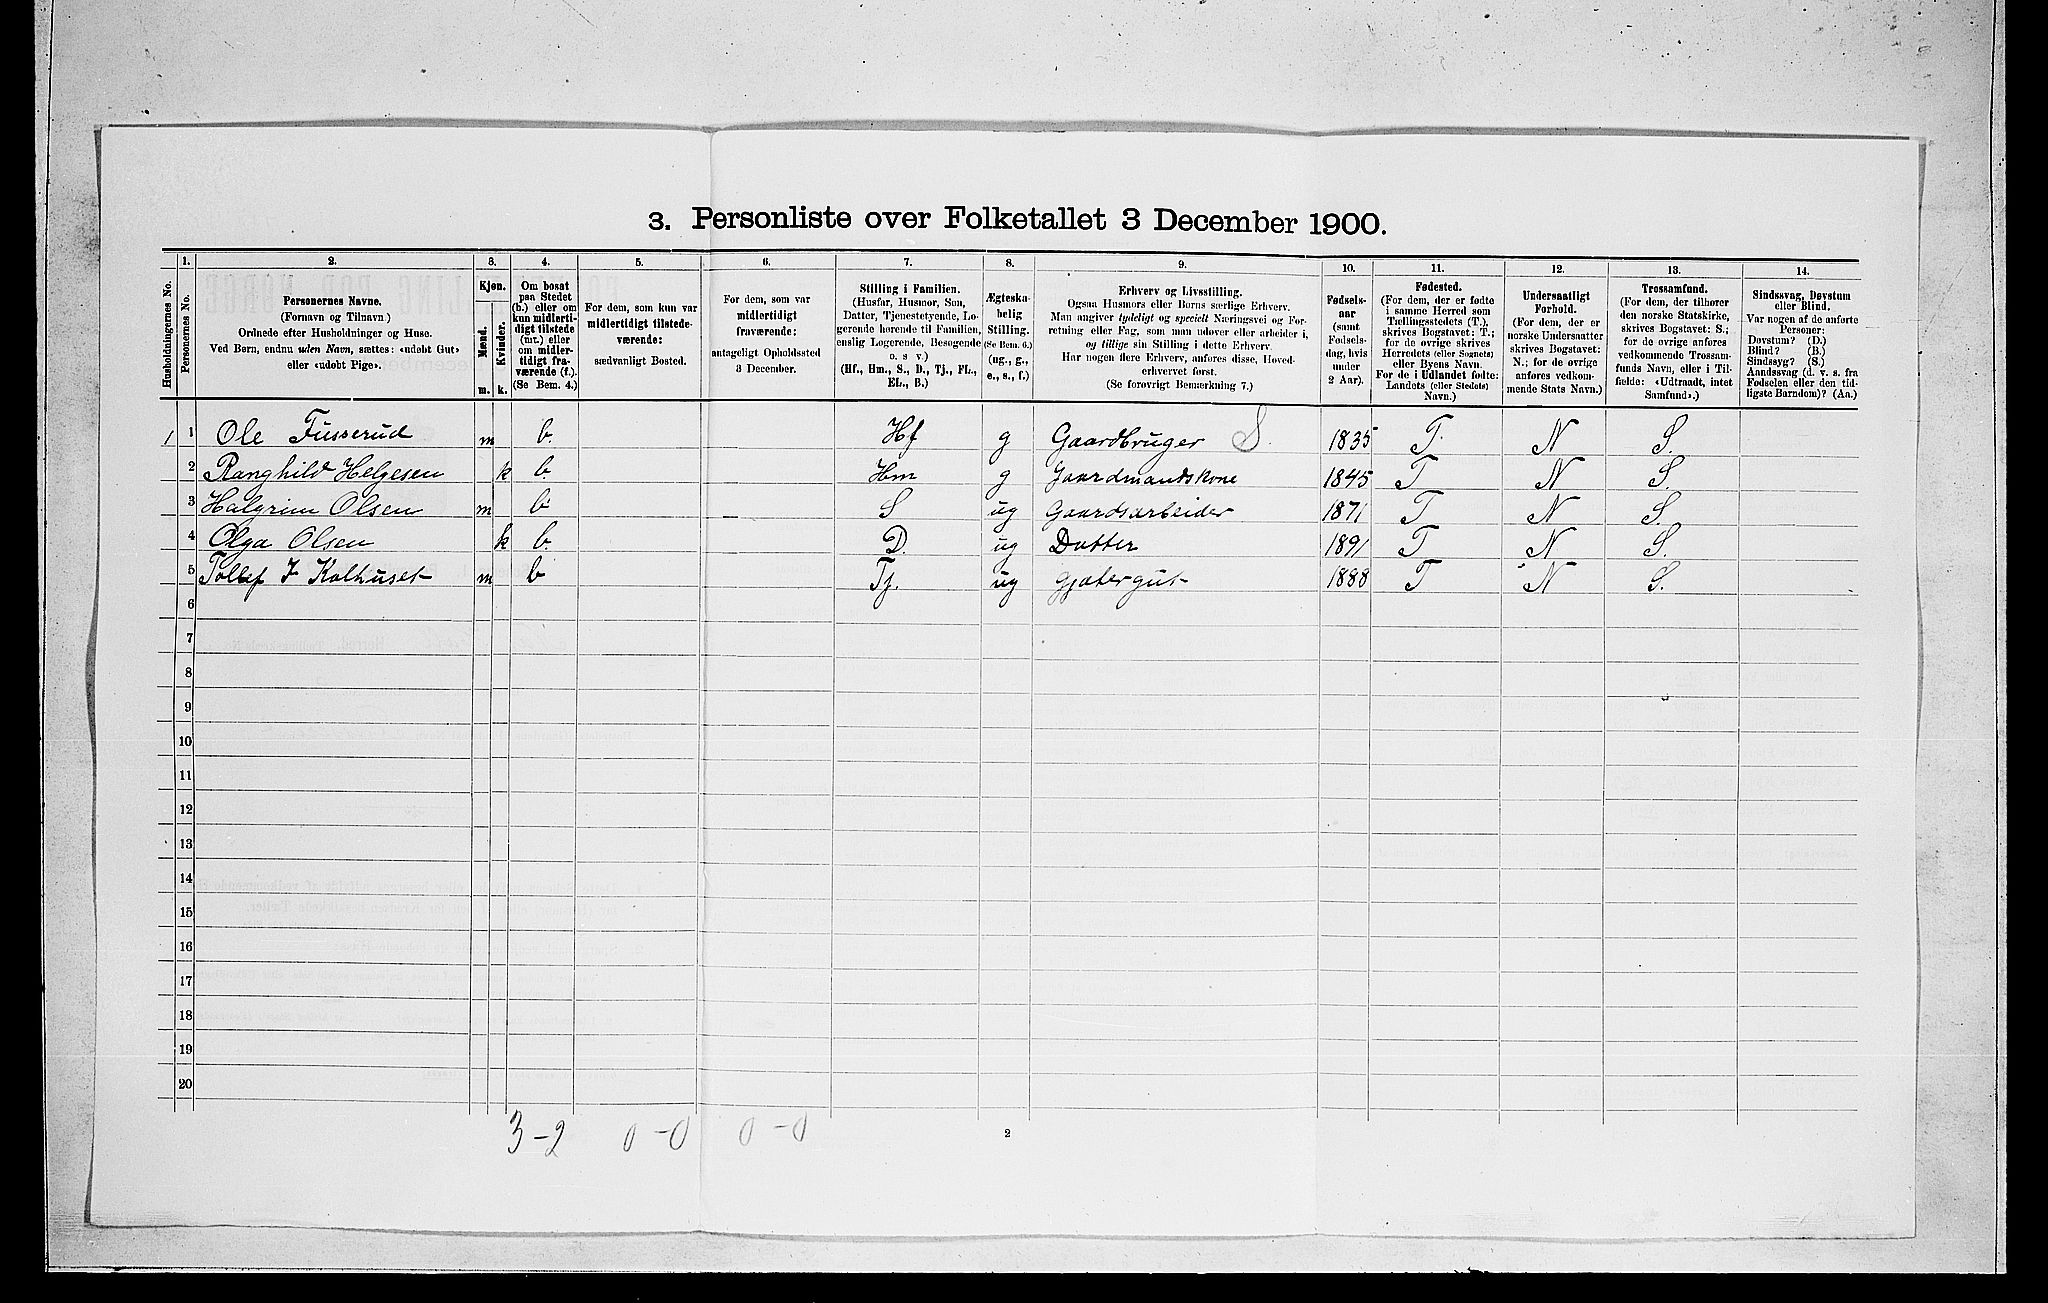 3. Personliste over Folketallet 3 December 1900.
1. 2. 3. 4. 5. 6. 7. 8. 9. 10. 11. 12. 13. 14.
Husholdningernes No.
Personernes No.
Personernes Navne.
(Fornavn og Tilnavn.)
Ordnede efter Husholdninger og Huse.
Ved Børn, endnu uden Navn, sættes: «udøbt Gut»
eller «udøbt Pige».
Kjøn.
Mænd.
Kvinder.
m. k.
Om bosat
paa Stedet
(b.) eller om
kun midlerti-
digt tilstede
(mt.) eller
om midler-
tidigt fra-
værende (f.).
(Se Bem. 4.)
For dem, som kun var
midlertidigt tilstede-
værende:
sædvanligt Bosted.
For dem, som var
midlertidigt
fraværende:
antageligt Opholdssted
3 December.
Stilling i Familien.
(Husfar, Husmor, Søn,
Datter, Tjenestetyende, Lo-
gerende hørende til Familien,
enslig Logerende, Besøgende
o. s v.)
(Hf., Hm., S., D., Tj., FL.,
EL., B.)
Ægteska-
belig
Stilling.
(Se Bem. 6.)
(ug., g.,
e., s., f.)
Erhverv og Livsstilling.
Ogsaa Husmors eller Børns særlige Erhverv.
Man angiver tydeligt og specielt Næringsvei og For-
retning eller Fag, som man udøver eller arbeider i,
og tillige sin Stilling i dette Erhverv.
Har nogen flere Erhverv, anføres disse, Hoved-
erhvervet først.
(Se forøvrigt Bemærkning 7.)
Fødsels-
aar
(samt
Fødsels-
dag, hvis
under
2 Aar).
Fødested.
(For dem, der er fødte
i samme Herred som
Tællingsstedets (T.),
skrives Bogstavet: T.;
for de øvrige skrives
Herredets (eller Sognets)
eller Byens Navn.
For de i Udlandet fødte:
Landets (eller Stedets)
Navn.)
Undersaatligt
Forhold.
(For dem, der er
norske Undersaatter
skrives Bogstavet:
N.; for de øvrige
anføres vedkom-
mende Stats Navn.)
Trossamfund.
(For dem, der tilhører
den norske Statskirke,
skrives Bogstavet: S.;
for de øvrige anføres
vedkommende Trossam-
funds Navn, eller i Til-
fælde: «Udtraadt, intet
Samfund».)
Sindssvag, Døvstum
eller Blind.
Var nogen af de anførte
Personer:
Døvstum? (D.)
Blind? (B.)
Sindssyg? (S.)
Aandssvag (d. v. s. fra
Fødselen eller den tid-
ligste Barndom)? (Aa.)
1 1 Ole Fusserud m b. Hf g Gaardbruger S. 1835 T. N S.
2 Ranghild Helgesen k b. Hm g Gaardmandskone 1845 T N S.
3 Halgrim Olsen m b S ug Gaardsarbeider 1871 T N S.
4 Olga Olsen k b. D. ug Datter 1891 T N S.
5 Tollef J Kolhuset m b Tj. ug Gjætergut 1888 T N S.
6
7
8
9
10
11
12
13
14
15
16
17
18
19
20
3-2 0-0 0-0
2